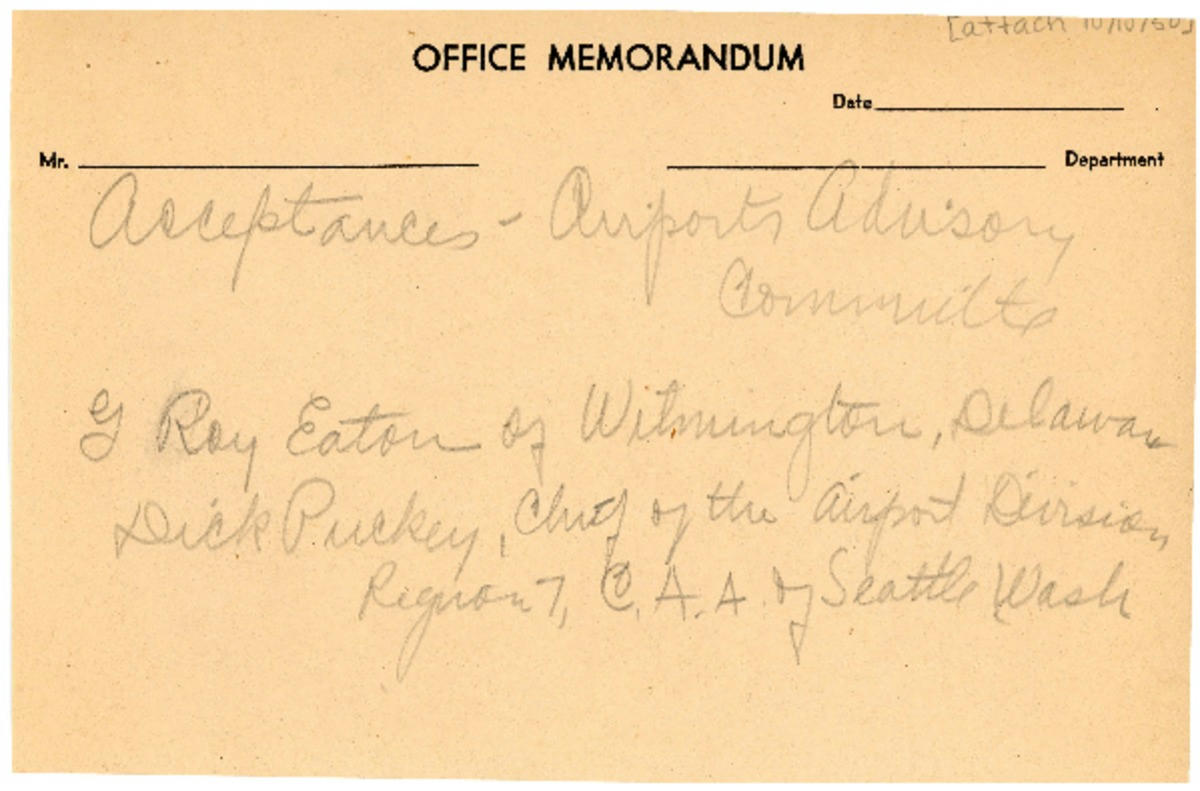 [attach 10/10/50]
OFFICE MEMORANDUM
Date
Mr. Department
Acceptances - Airports Advisory
Committe
G Roy Eaton of Wilmington, Delaware
Dick Puckey, Chief of the Airport Division
Region 7, C.A.A. of Seattle Wash